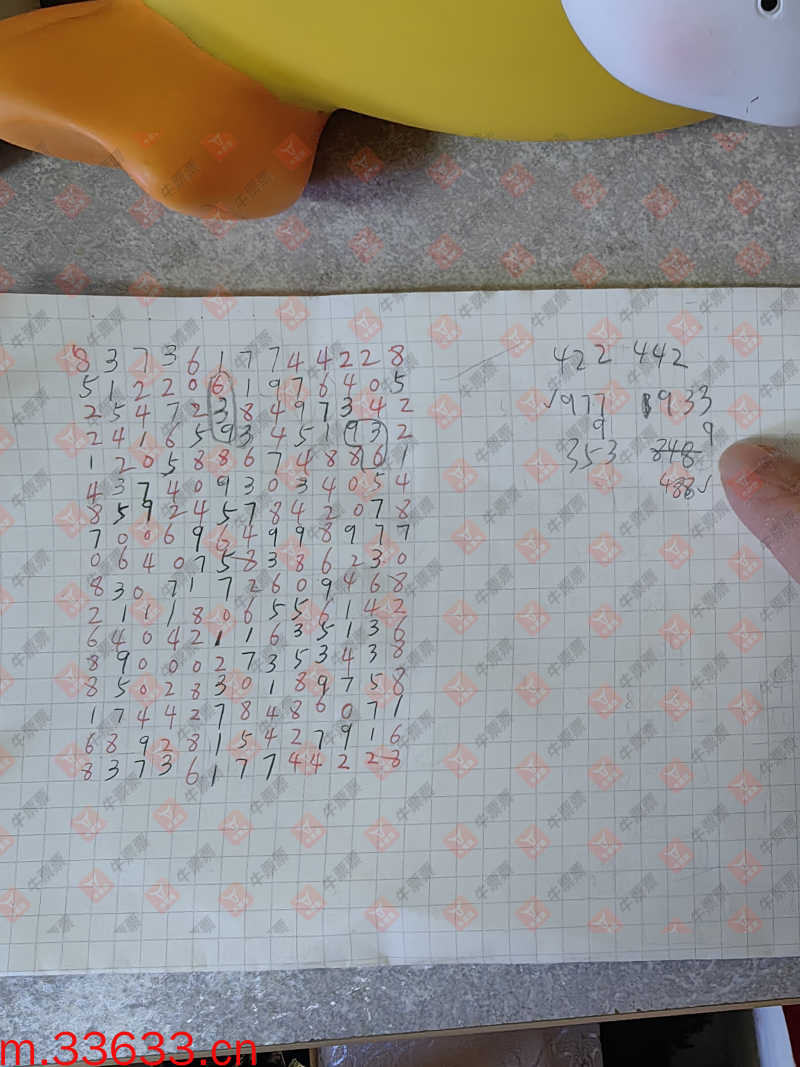 8 3 7 3 6 1 7 7 4 4 2 2 8
5 1 2 2 0 6 1 9 7 6 4 0 5
2 5 4 7 2 3 8 4 9 7 3 4 2
2 4 1 6 5 9 3 4 5 1 9 3 2
1 2 0 5 8 8 6 7 4 8 8 6 1
4 3 7 4 0 9 3 0 3 4 0 5 4
8 5 9 2 4 5 7 8 4 2 0 7 8
7 0 0 6 9 6 4 9 9 8 9 7 7
0 6 4 0 7 5 8 3 8 6 2 3 0
8 3 0 7 1 7 2 6 0 9 4 6 8
2 1 1 1 8 0 6 5 5 6 1 4 2
6 4 0 4 2 1 1 6 3 5 1 3 6
8 9 0 0 0 2 7 3 5 3 4 3 8
8 5 0 2 8 3 0 1 8 9 7 5 8
1 7 4 4 2 7 8 4 8 6 0 7 1
6 8 9 2 8 1 5 4 2 7 9 1 6
8 3 7 3 6 1 7 7 4 4 2 2 8
422 442
√977 1933
9 9
353 848
488√
牛票票
m.33633.cn